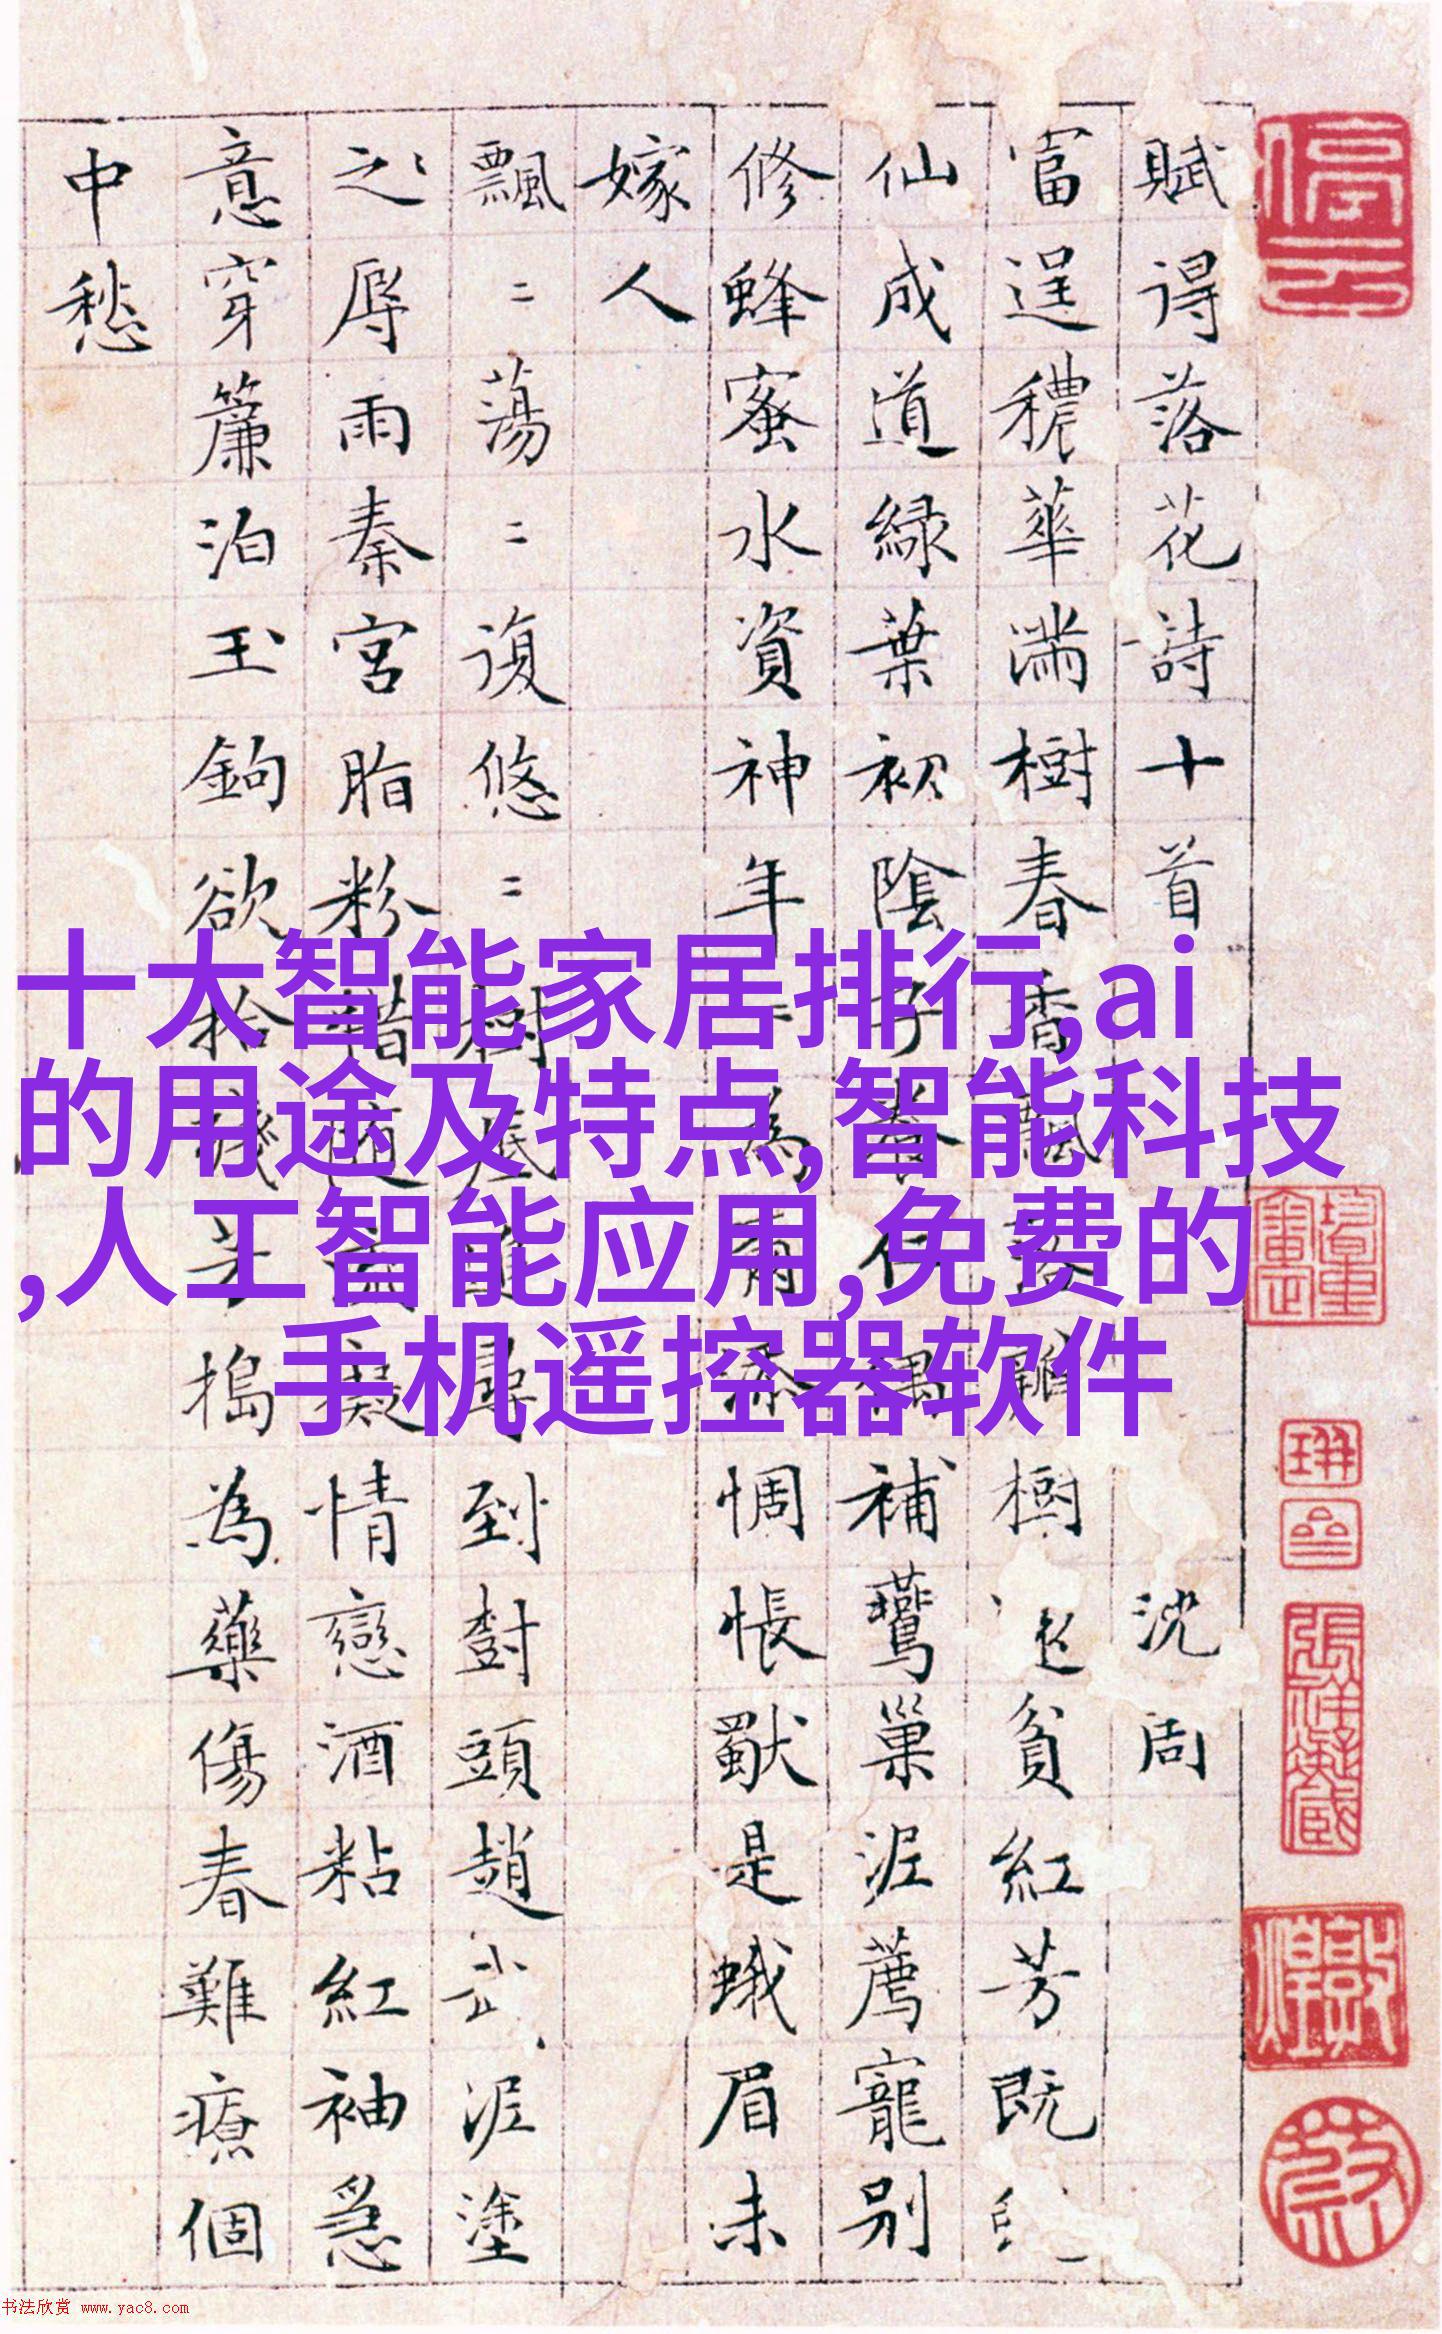 賦得落花詩十首 沈周
富逞穠華滿樹春香飄樹貧紅芳既
仙成道綠葉初陰子養仁偶補鶯巢泥薦寵別
修蜂蜜水資神年二為爾添惆悵獸是蛾眉未
嫁人
飄二蕩二復悠二樹底追尋到樹頭趙武泥塗
之辱雨秦宮脂粉惜隨流癡情戀酒粘紅袖急
意穿簾泊玉鉤欲拾殘芳搗為藥傷春難療個
中愁
十大智能家居排行,ai
的用途及特点,智能科技
,人工智能应用,免费的
手机遥控器软件
书法欣赏 www.yac8.com